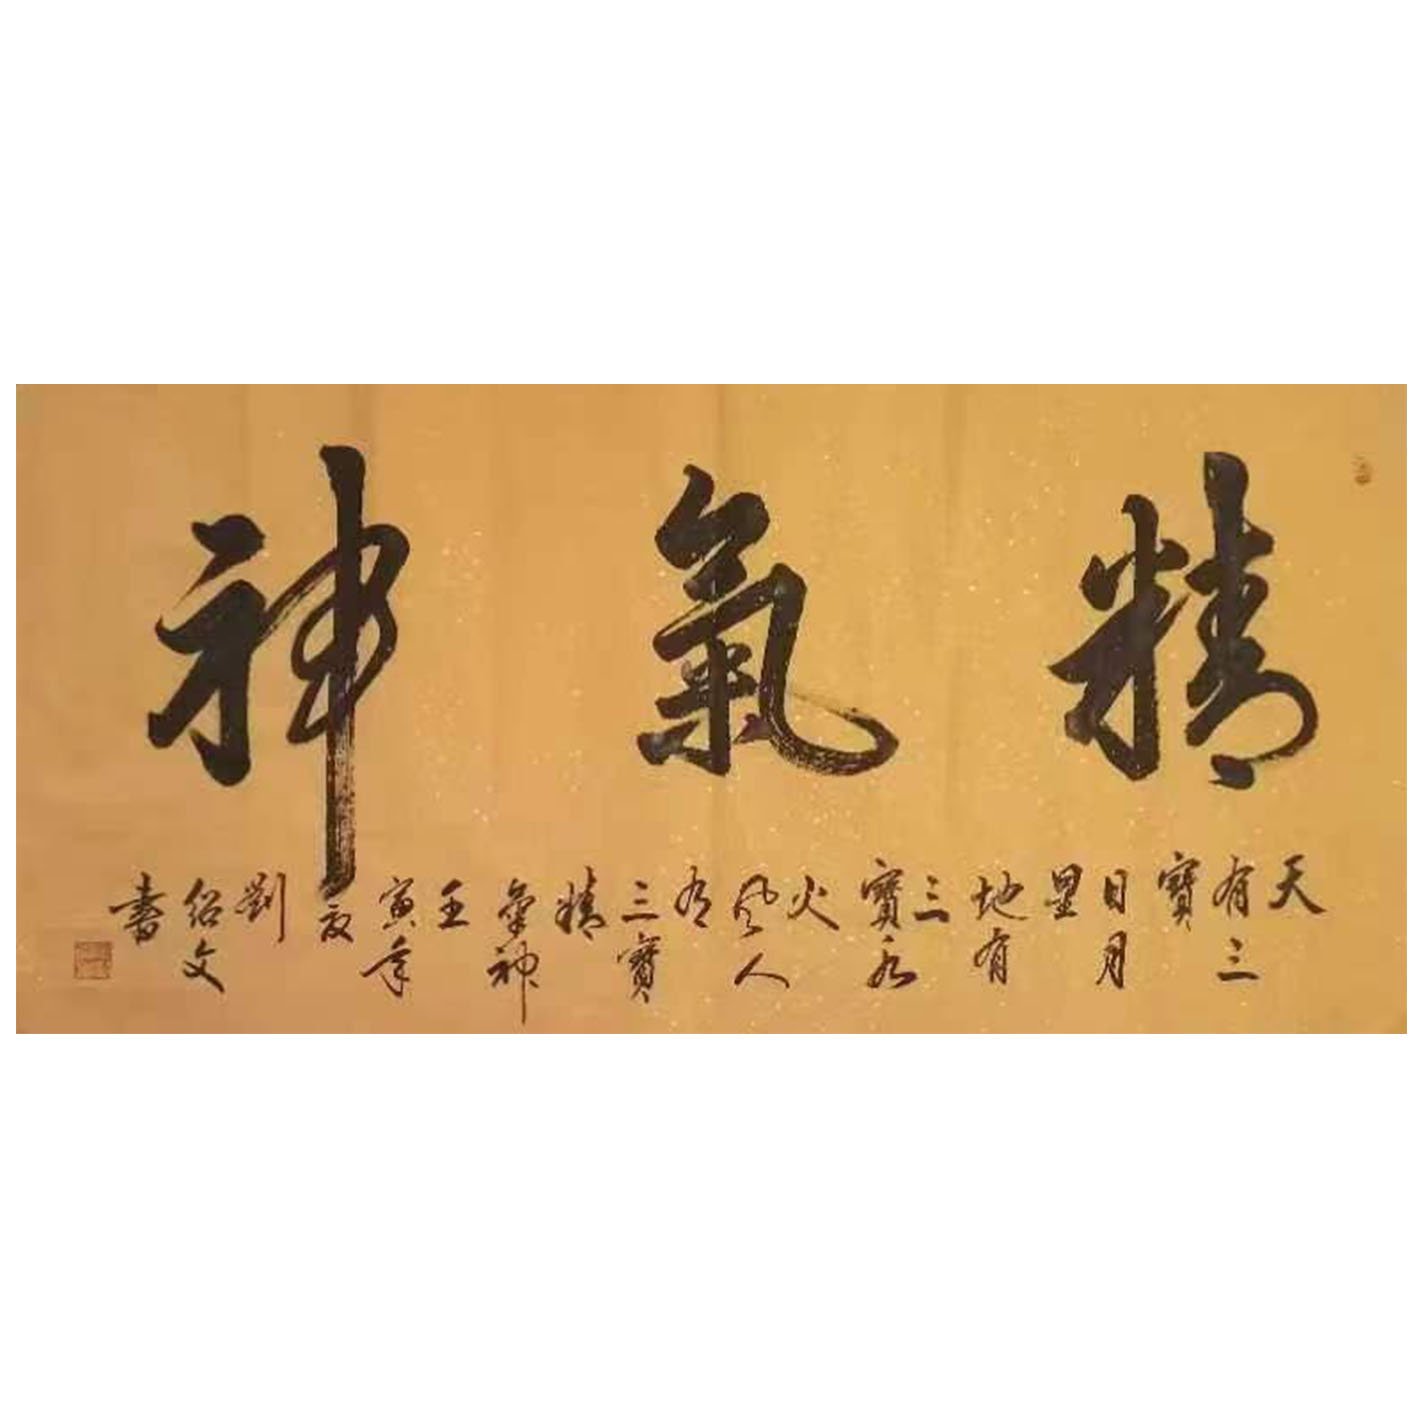 精氣神
天
有三
寶
日月
星
地有
三
寶水
火
風人
有
三寶
精
氣神
壬
寅年
夏
劉
紹文
書